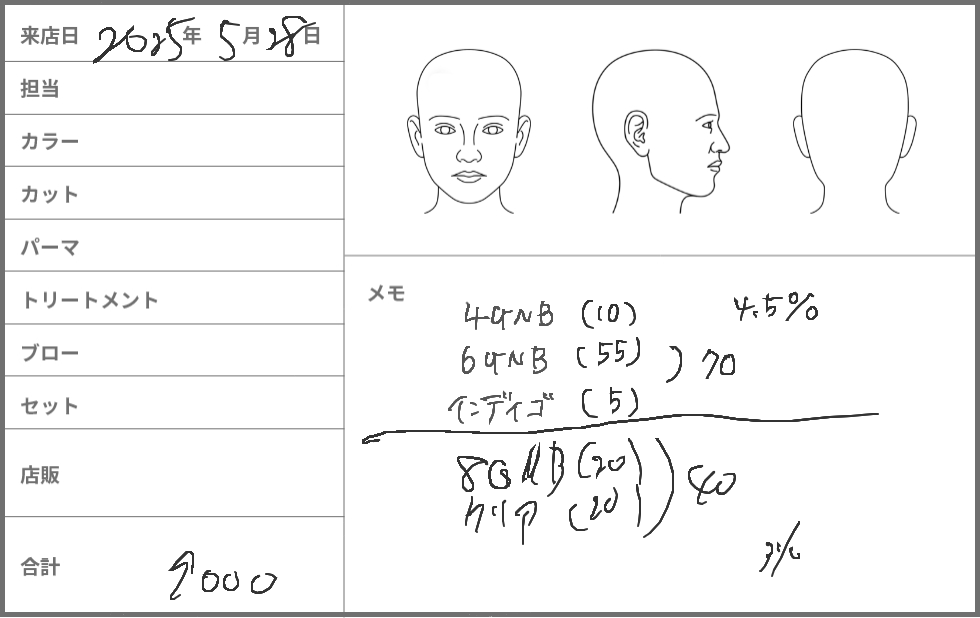 来店日 2025年 5月28日
担当
カラー
カット
パーマ
トリートメント
ブロー
セット
店販
合計 9000
メモ
4GNB (10) 4.5%
6GNB (55) ) 70
インディゴ (5)
8GNB (20)
クリア (20) ) 40
3%